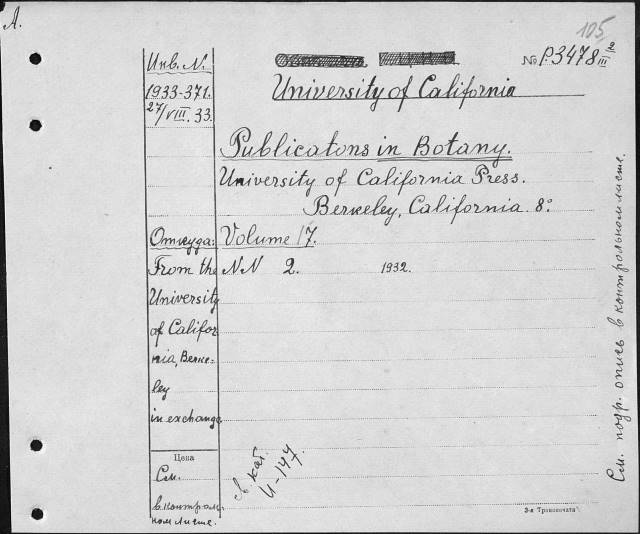 A.
105
№ P.3478 III/10
University of California
Publicatons in Botany.
University of California Press.
Berkeley, California. 8°
Volume 17.
NN 2. 1932.
Инв. N.
1933-371.
27/VIII. 33.
Откуда:
From the
University
of Califor
nia, Berke-
ley
in exchange
Цена
См.
в контроль-
ном листе.
См. подр. опись в контрольном листе.
кат.
И-147
3-я Транспечати